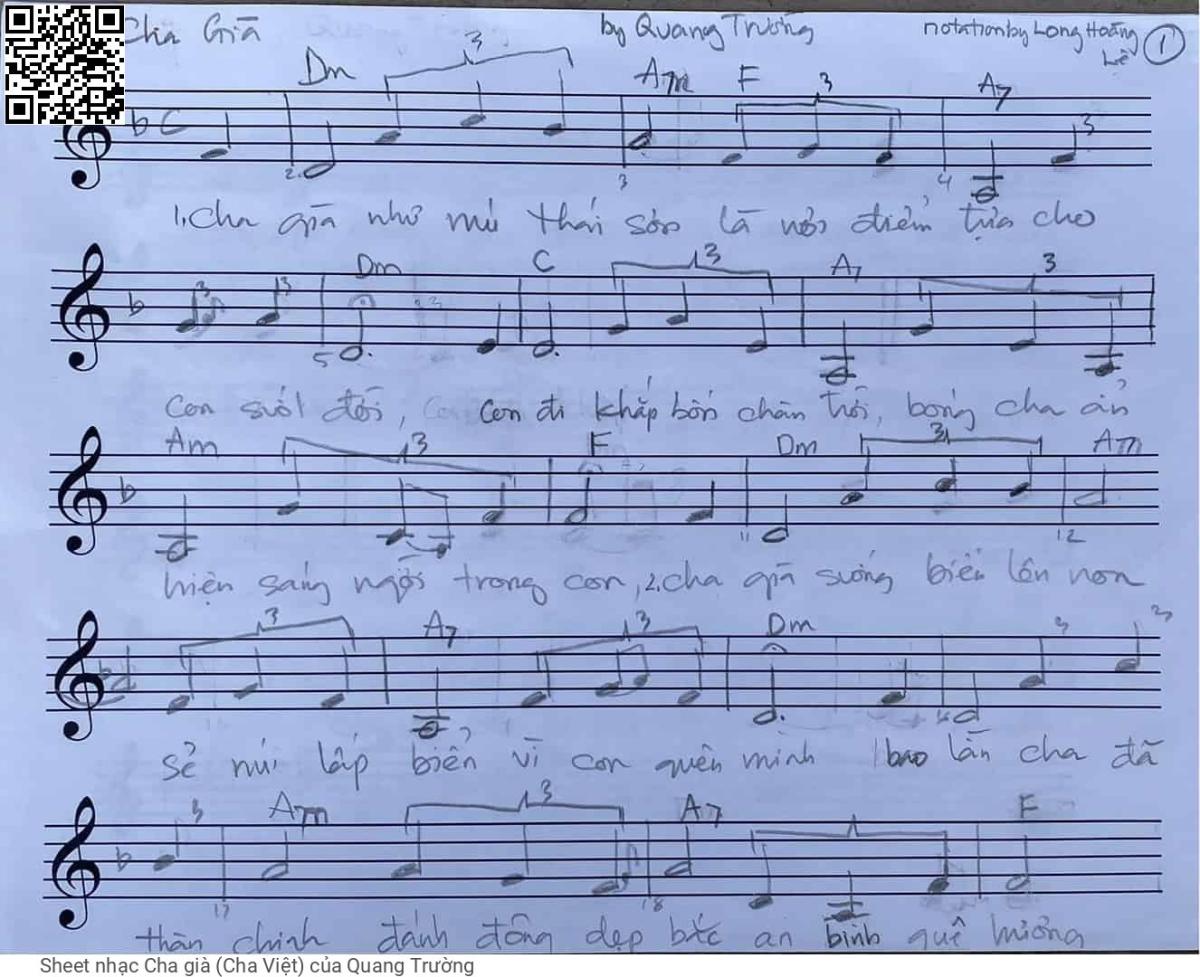 Cha Già by Quang Trường notation by Long Hoàng Lê 1
Dm 3 Am F 3 A7
C 3
2. 3 4
1. Cha già như núi thái sơn là nơi điểm tựa cho
Dm C 3 A7 3
3 3
5
con suốt đời, con đi khắp bốn chân trời, bóng cha ẩn
Am 3 F Dm 3 Am
11 12
hiện sáng ngời trong con, 2. cha già sương biển lên non
3 A7 3 Dm 3 3
sẻ núi lấp biển vì con quên mình bao lần cha đã
3 Am 3 A7 F
17 18
thân chinh đánh đông dẹp bắc an bình quê hương
Sheet nhạc Cha già (Cha Việt) của Quang Trường